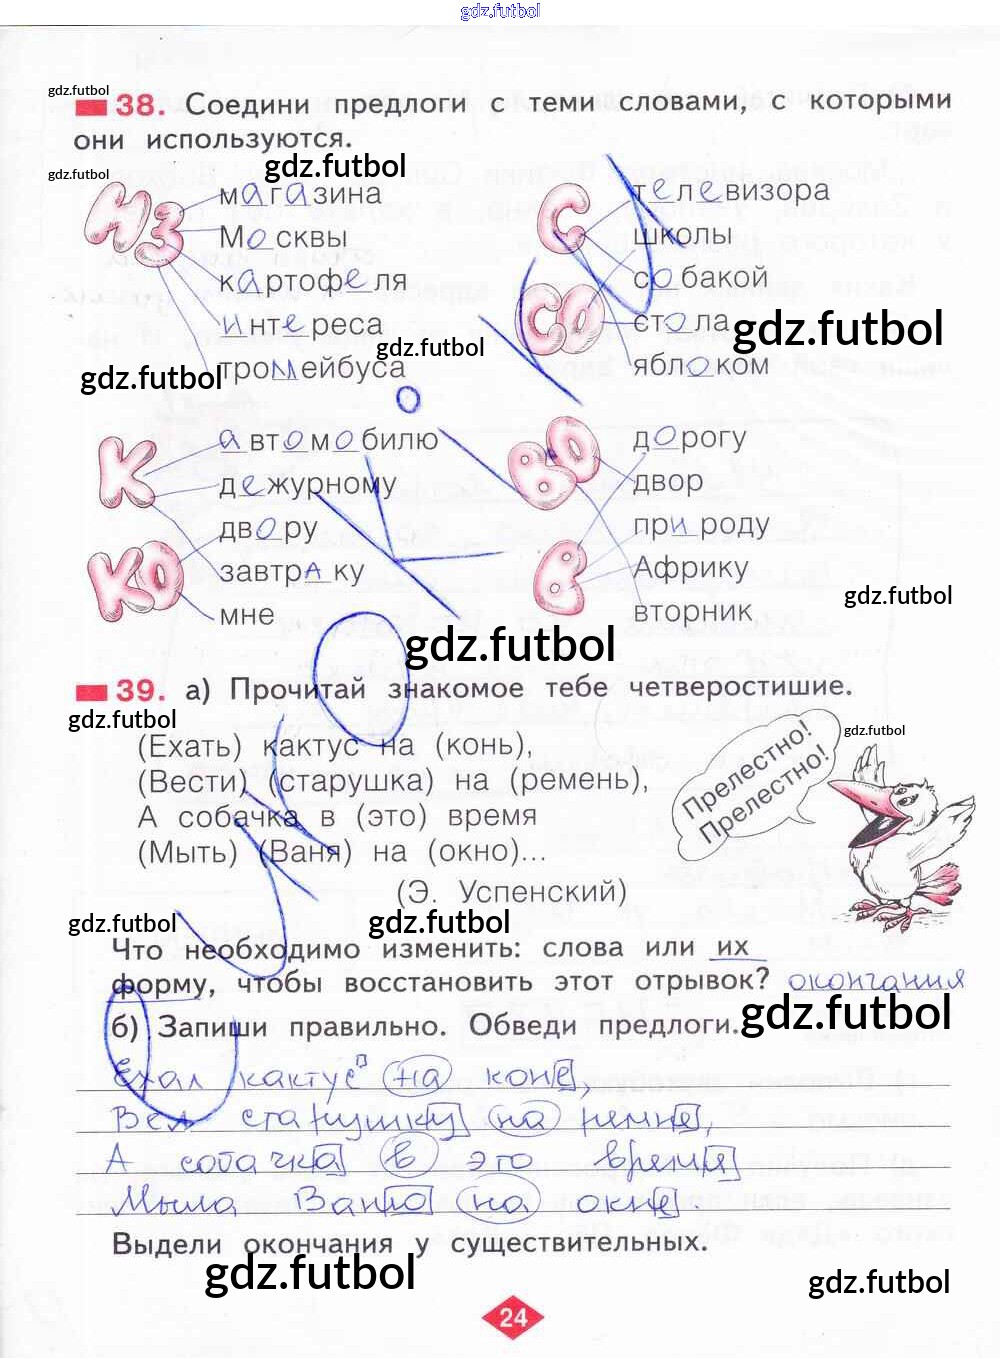 gdz.futbol
gdz.futbol
38. Соедини предлоги с теми словами, с которыми
они используются.
gdz.futbol
gdz.futbol
ИЗ
магазина
Москвы
картофеля
интереса
тромейбуса
С
СО
телевизора
школы
собакой
стола
яблоком
gdz.futbol
gdz.futbol
gdz.futbol
К
КО
автомобилю
дежурному
двору
завтраку
мне
ВО
В
дорогу
двор
природу
Африку
вторник
gdz.futbol
gdz.futbol
39. а) Прочитай знакомое тебе четверостишие.
gdz.futbol
(Ехать) кактус на (конь),
(Вести) (старушка) на (ремень),
А собачка в (это) время
(Мыть) (Ваня) на (окно)...
(Э. Успенский)
Прелестно!
Прелестно!
gdz.futbol
gdz.futbol
gdz.futbol
Что необходимо изменить: слова или их
форму, чтобы восстановить этот отрывок? окончания
gdz.futbol
б) Запиши правильно. Обведи предлоги.
Ехал кактус на коне,
Вёл старушку на ремне,
А собачка в это время
Мыла Ваню на окне.
Выдели окончания у существительных.
gdz.futbol
gdz.futbol
24